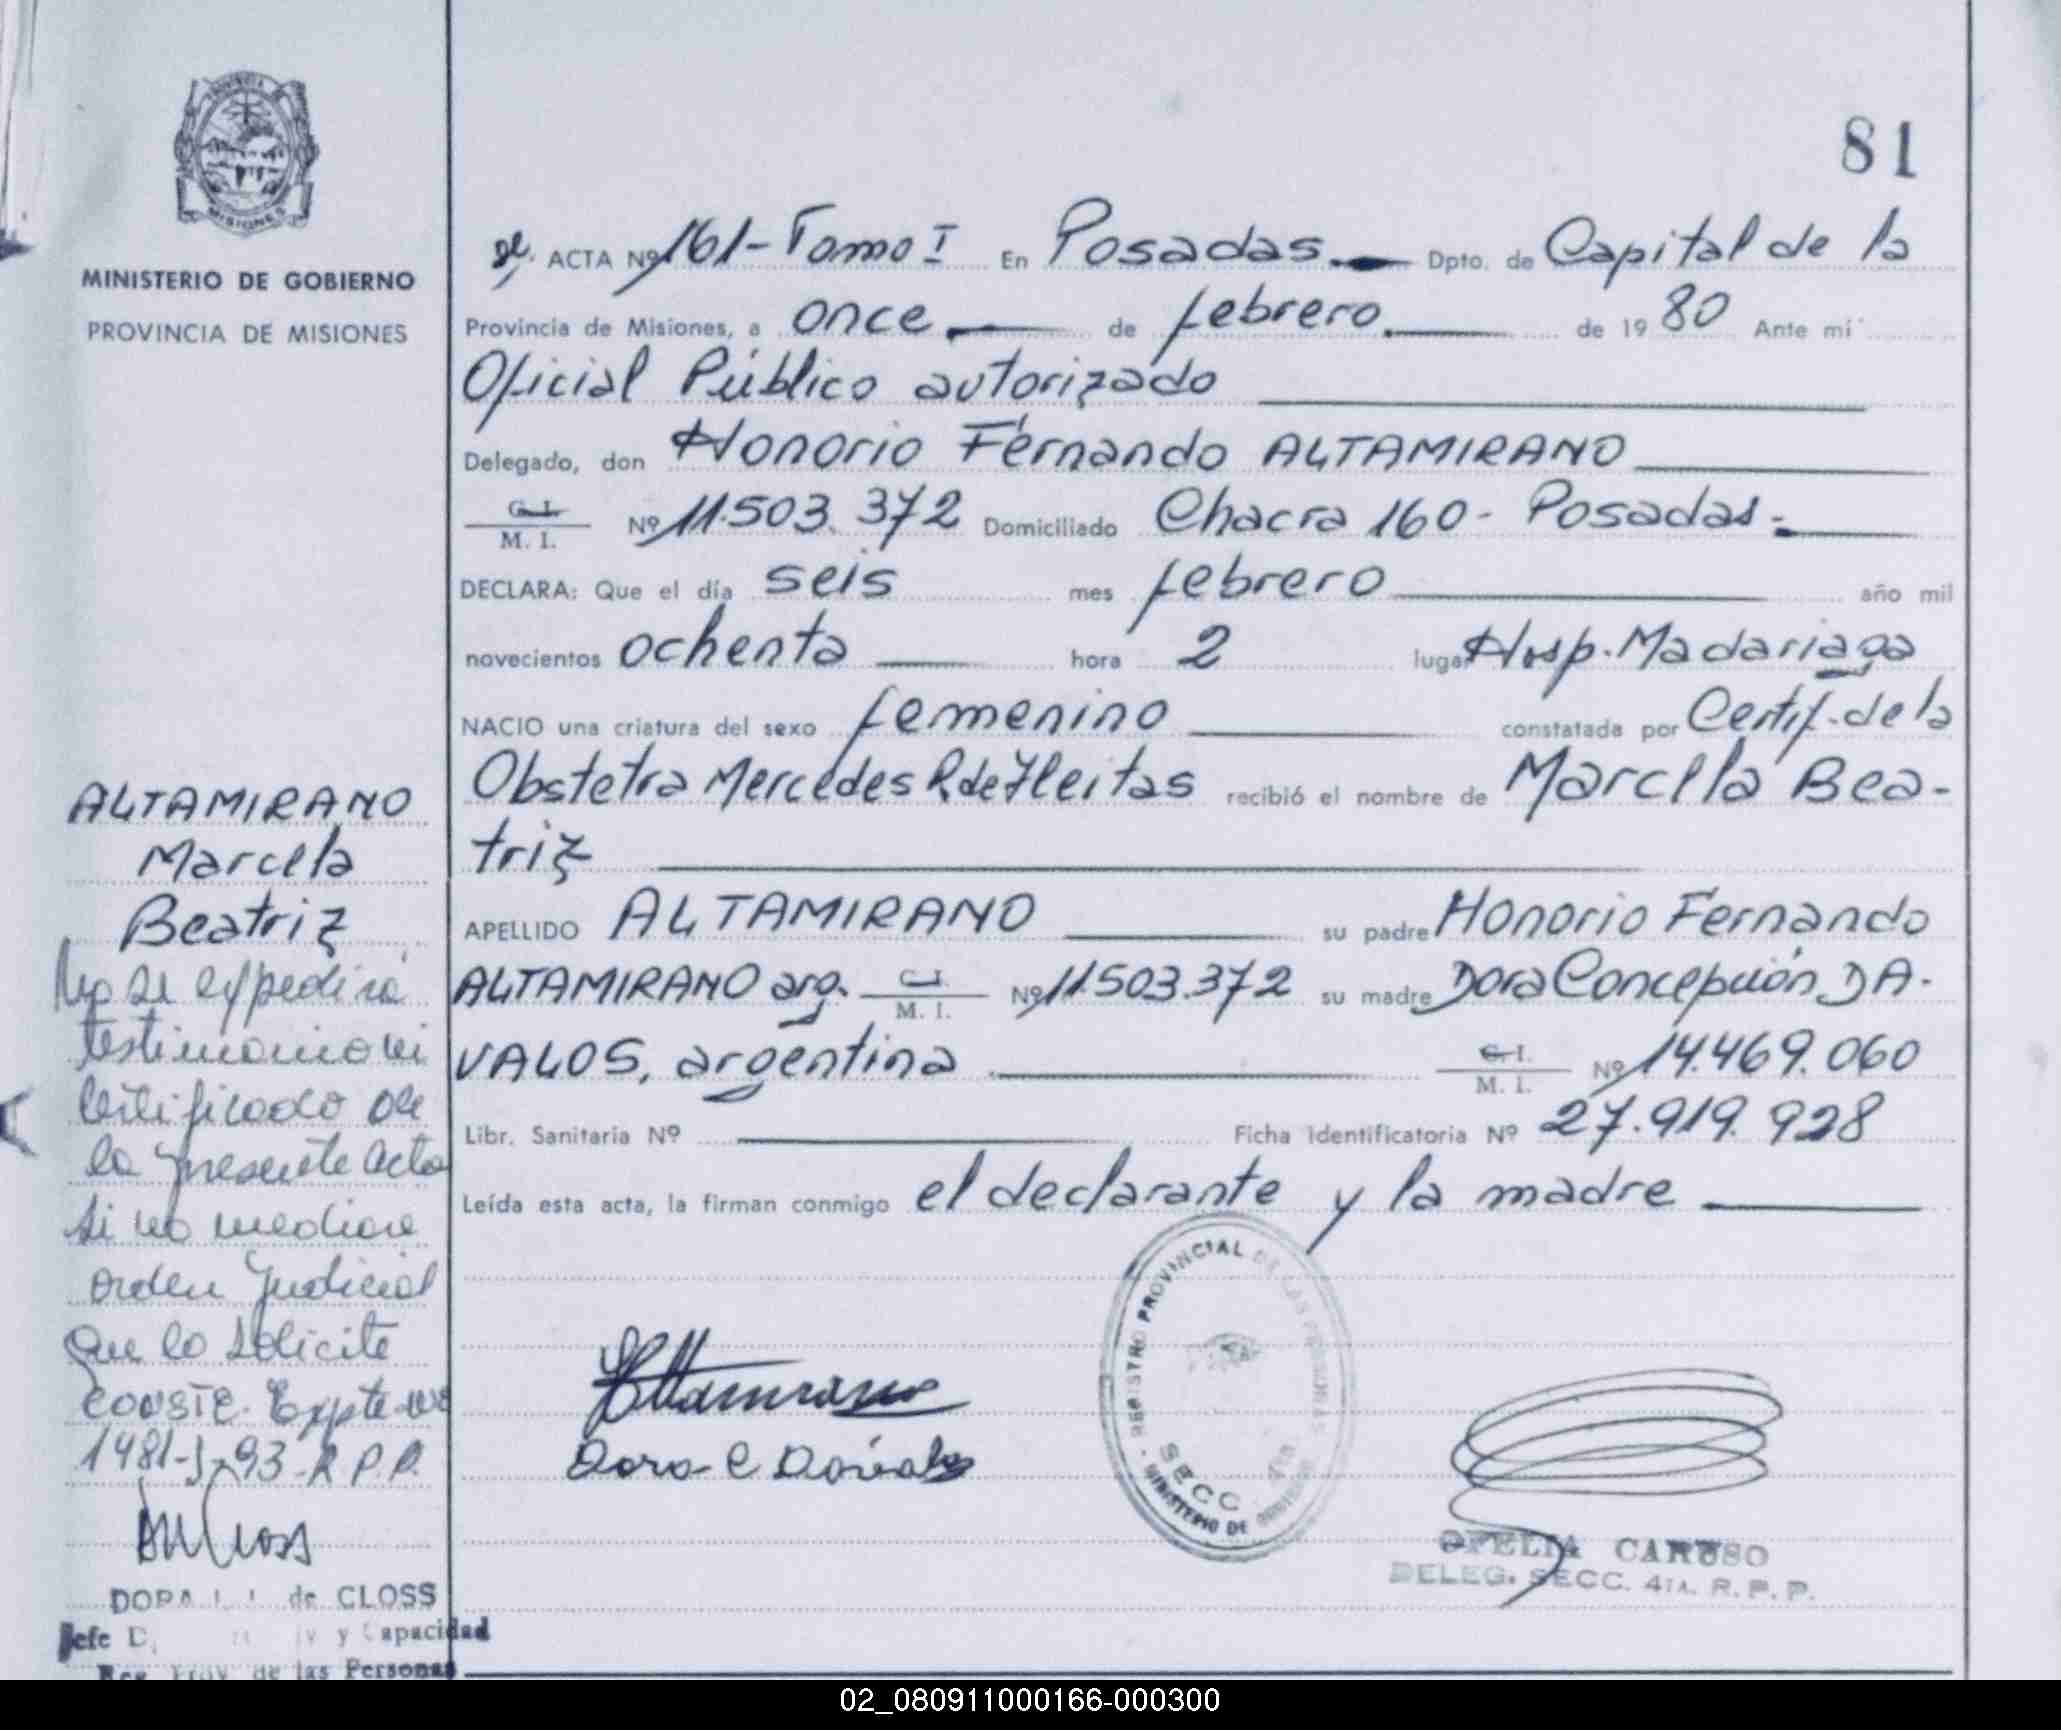 81
MINISTERIO DE GOBIERNO
PROVINCIA DE MISIONES
ACTA Nº 161 - Tomo I En Posadas. Dpto. de Capital de la
Provincia de Misiones, a once de febrero. de 19 80 Ante mí
Oficial Público autorizado
Delegado, don Honorio Fernando ALTAMIRANO
C. I. M. I. Nº 11.503.372 Domiciliado Chacra 160 - Posadas.
DECLARA: Que el día seis mes febrero año mil
novecientos ochenta hora 2 lugar Hosp. Madariaga
NACIO una criatura del sexo femenino constatada por Certif. de la
Obstetra Mercedes R. de Fleitas recibió el nombre de Marcela Bea-
triz
APELLIDO ALTAMIRANO su padre Honorio Fernando
ALTAMIRANO arg. C. I. M. I. Nº 11.503.372 su madre Dora Concepción DA-
VALOS, argentina C. I. M. I. Nº 14.469.060
Libr. Sanitaria Nº Ficha identificatoria Nº 27.919.928
Leída esta acta, la firman conmigo el declarante y la madre
ALTAMIRANO
Marcela
Beatriz
No se expedirá
testimonio ni
certificado de
la presente acta
si no mediare
orden judicial
que lo solicite
CONSTE. Expte. Nº
1481-J-93-R.P.P.
DORA de CLOSS
Jefe y Capacidad
Reg. Prov. de las Personas
Altamirano
Dora C Dávalos
REGISTRO PROVINCIAL DE LAS PERSONAS
SECC. 4ta
MINISTERIO DE GOBIERNO
OFELIA CARUSO
DELEG. SECC. 4TA. R. P. P.
02_080911000166-000300